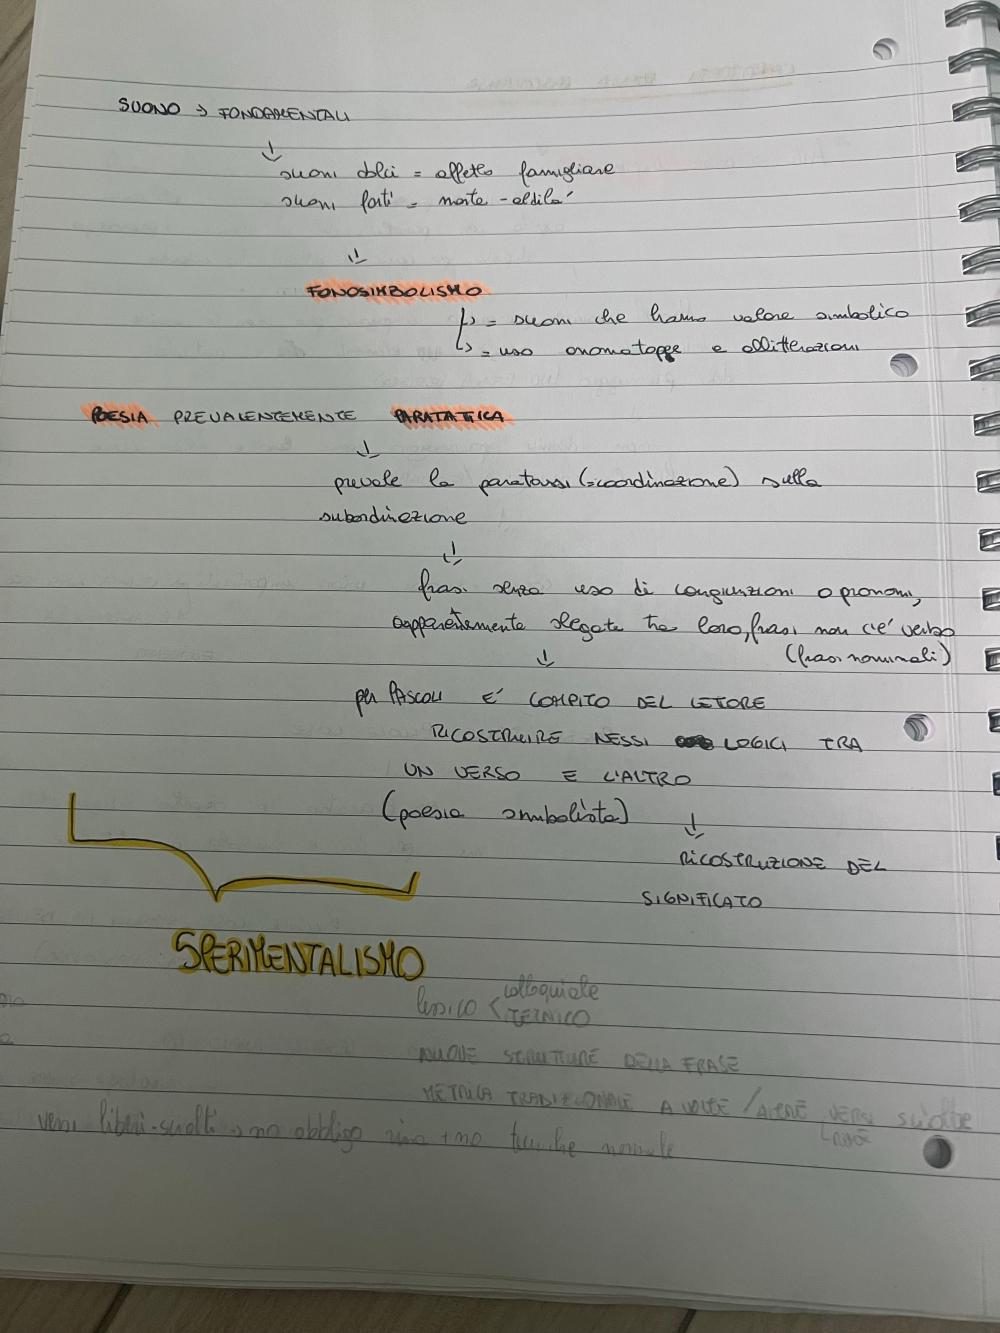 SUONO → FONDAMENTALI
↓
suoni dolci = affetto famigliare
suoni forti = morte - aldilà
↓
FONOSIMBOLISMO
↳ = suoni che hanno valore simbolico
↳ = uso onomatopee e allitterazioni
POESIA PREVALENTEMENTE PARATATTICA
↓
prevale la paratassi (=coordinazione) sulla
subordinazione
↓
frasi senza uso di congiunzioni o pronomi,
apparentemente slegate tra loro, frasi non c'e' verbo
(frasi nominali)
↓
per PASCOLI E' COMPITO DEL LETORE
RICOSTRUIRE NESSI LOGICI TRA
UN VERSO E L'ALTRO
(poesia simbolista) ↓
RICOSTRUZIONE DEL
SIGNIFICATO
SPERIMENTALISMO
lessico < colloquiale
TECNICO
NUOVE STRUTTURE DELLA FRASE
METRICA TRADIZIONALE A VOLTE / ALTRE VERSI SCIOLTE
versi liberi-sciolti → no obbligo rima + no